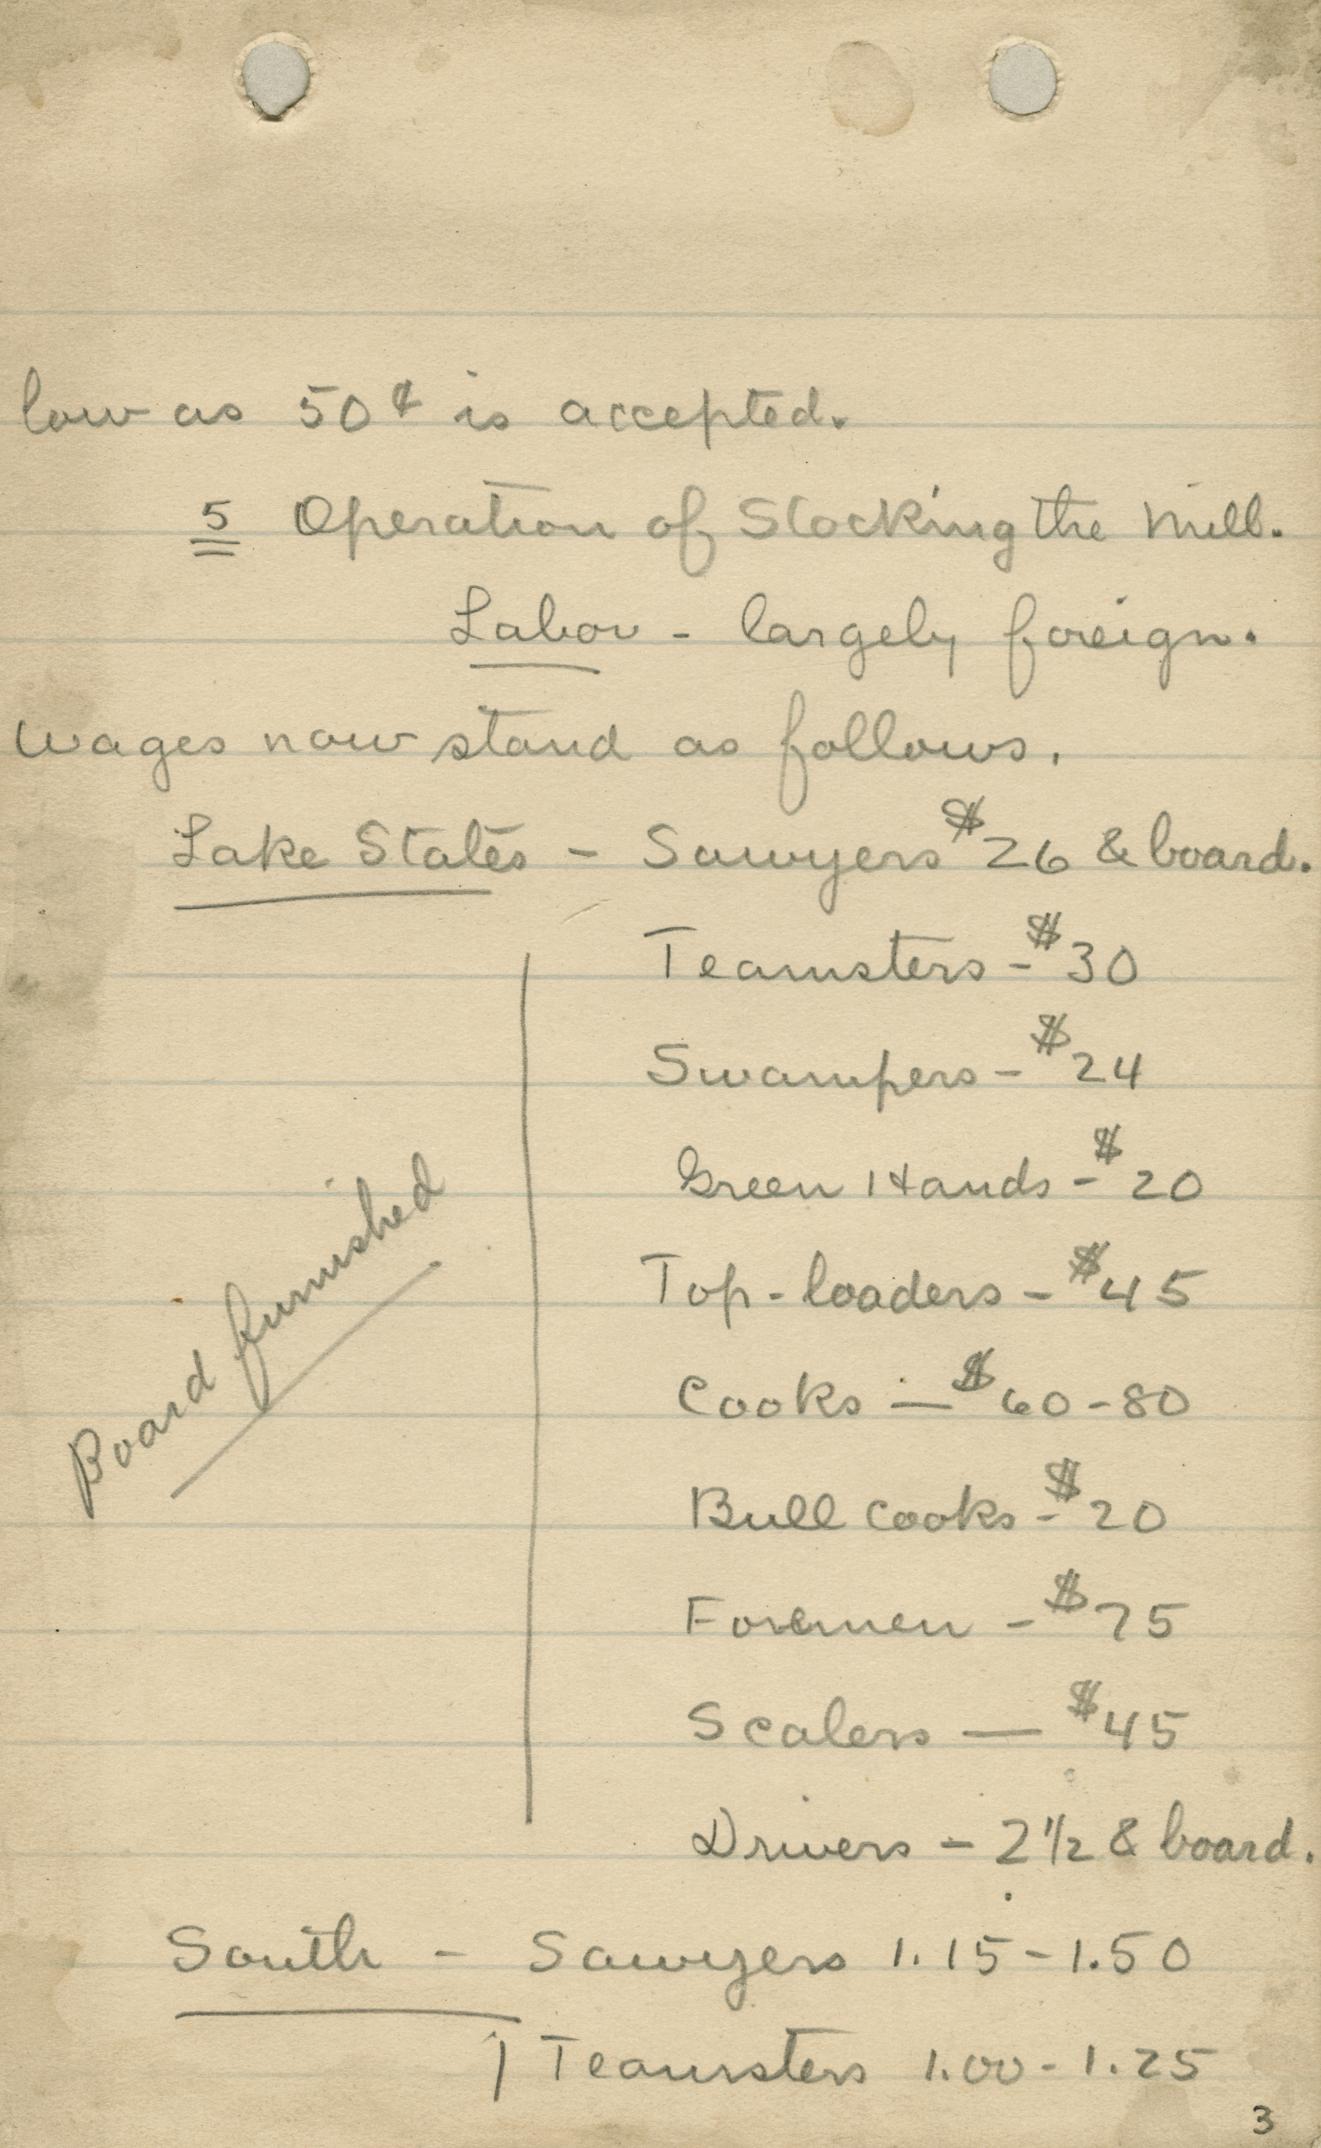 low as 50¢ is accepted.
5 Operation of Stocking the Mill.
Labor - largely foreign.
Wages now stand as follows.
Lake States - Sawyers $26 & board.
Teamsters - $30
Swampers - $24
Green Hands - $20
Top-loaders - $45
Cooks — $60-80
Bull Cooks - $20
Foremen - $75
Scalers — $45
Drivers - 2 1/2 & board.
Board furnished
South - Sawyers 1.15-1.50
Teamsters 1.00-1.25
3